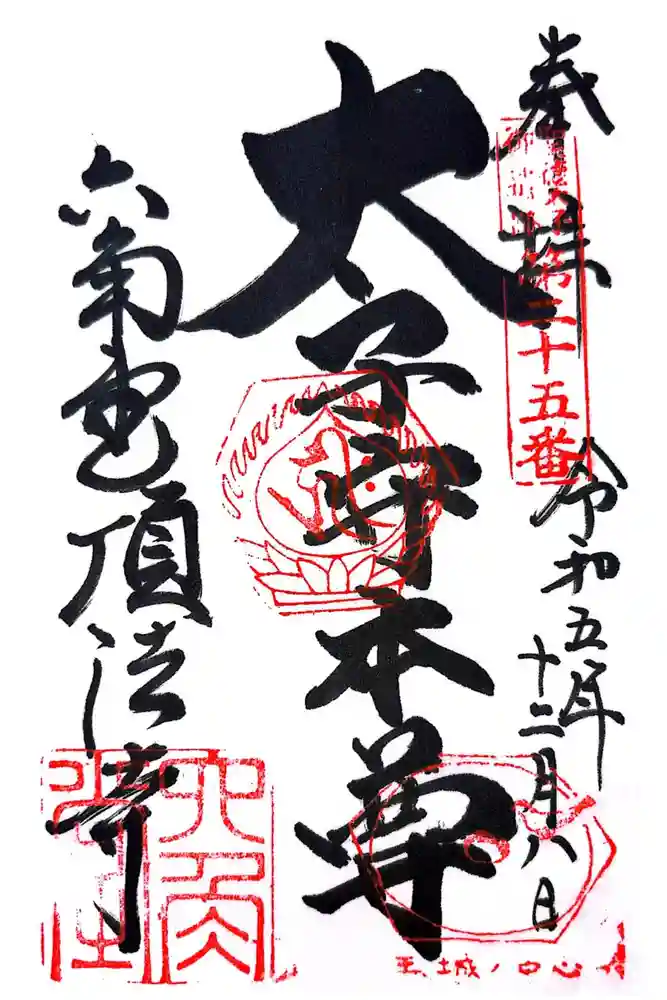 奉拝
第三十五番
令和五年
十二月八日
太子守本尊
六角堂頂法寺
六角堂
王城ノ中心